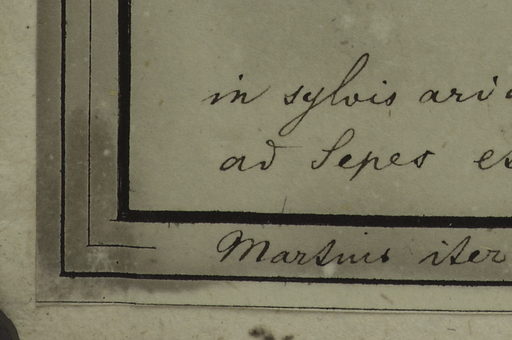 in sylvis ari
ad Sepes
Martius iter